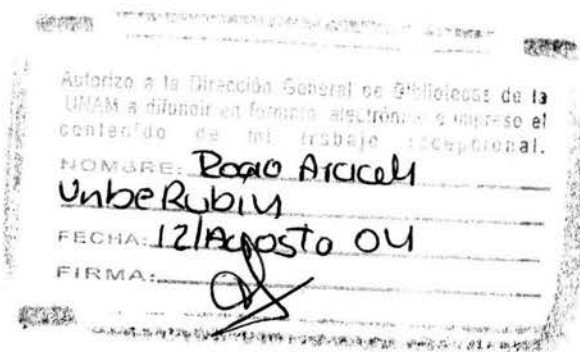 Autorizo a la Dirección General de Bibliotecas de la
UNAM a difundir en formato electrónico e impreso el
contenido de mi trabajo recepcional.
NOMBRE: Rocío Araceli
Uribe Rubin
FECHA: 12/Agosto 04
FIRMA: